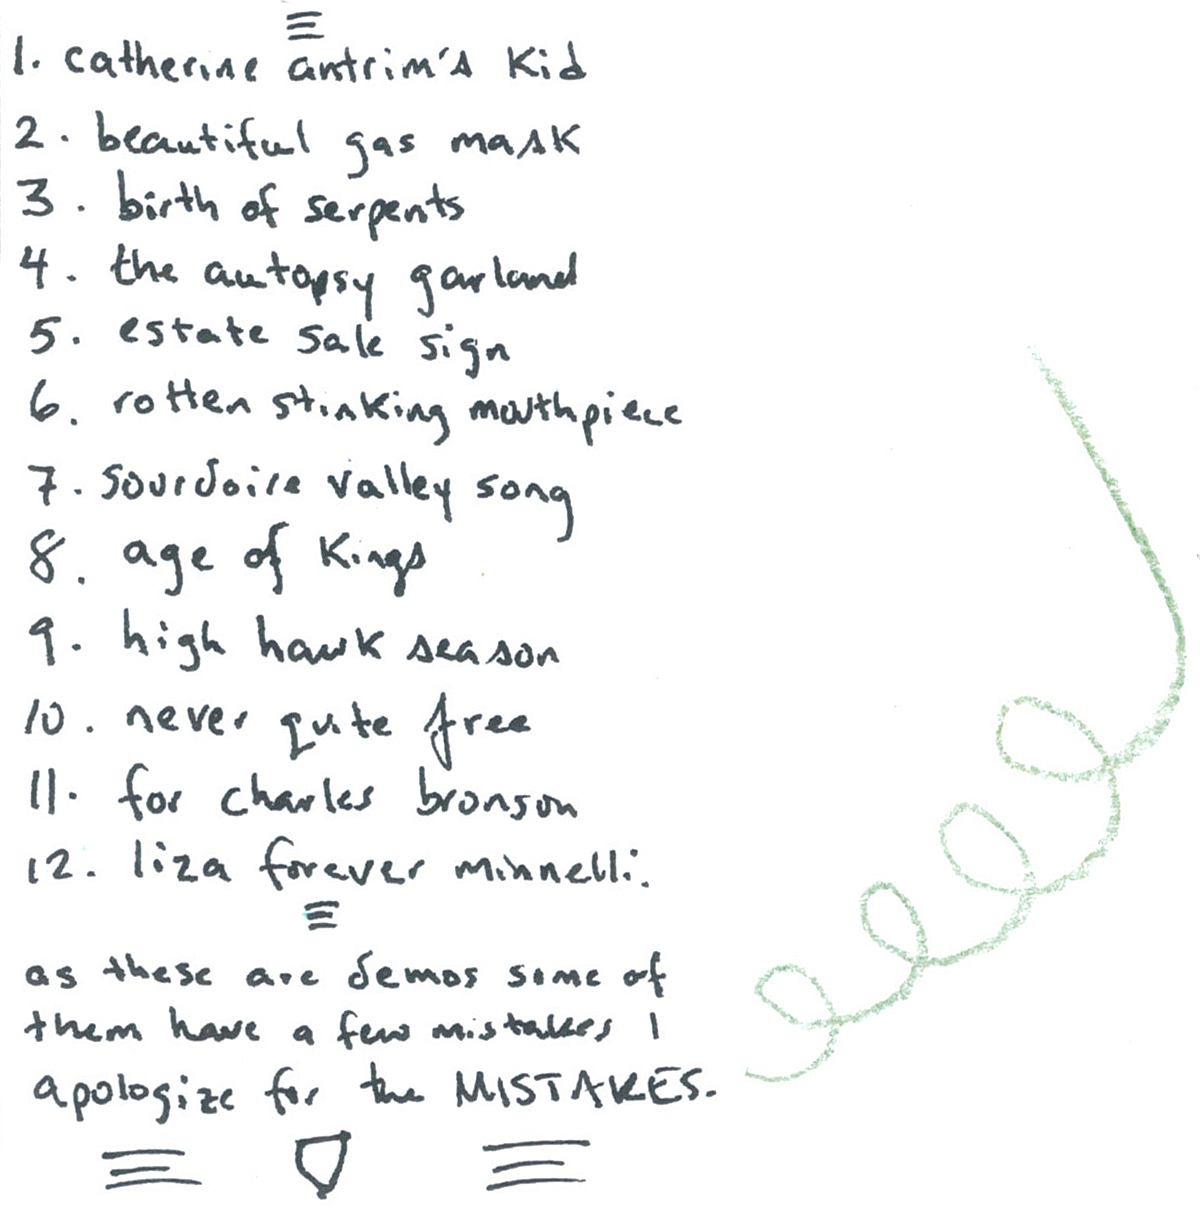 1. catherine antrim's kid
2. beautiful gas mask
3. birth of serpents
4. the autopsy garland
5. estate sale sign
6. rotten stinking mouthpiece
7. sourdoire valley song
8. age of kings
9. high hawk season
10. never quite free
11. for charles bronson
12. liza forever minnelli.
as these are demos some of
them have a few mistakes I
apologize for the MISTAKES.